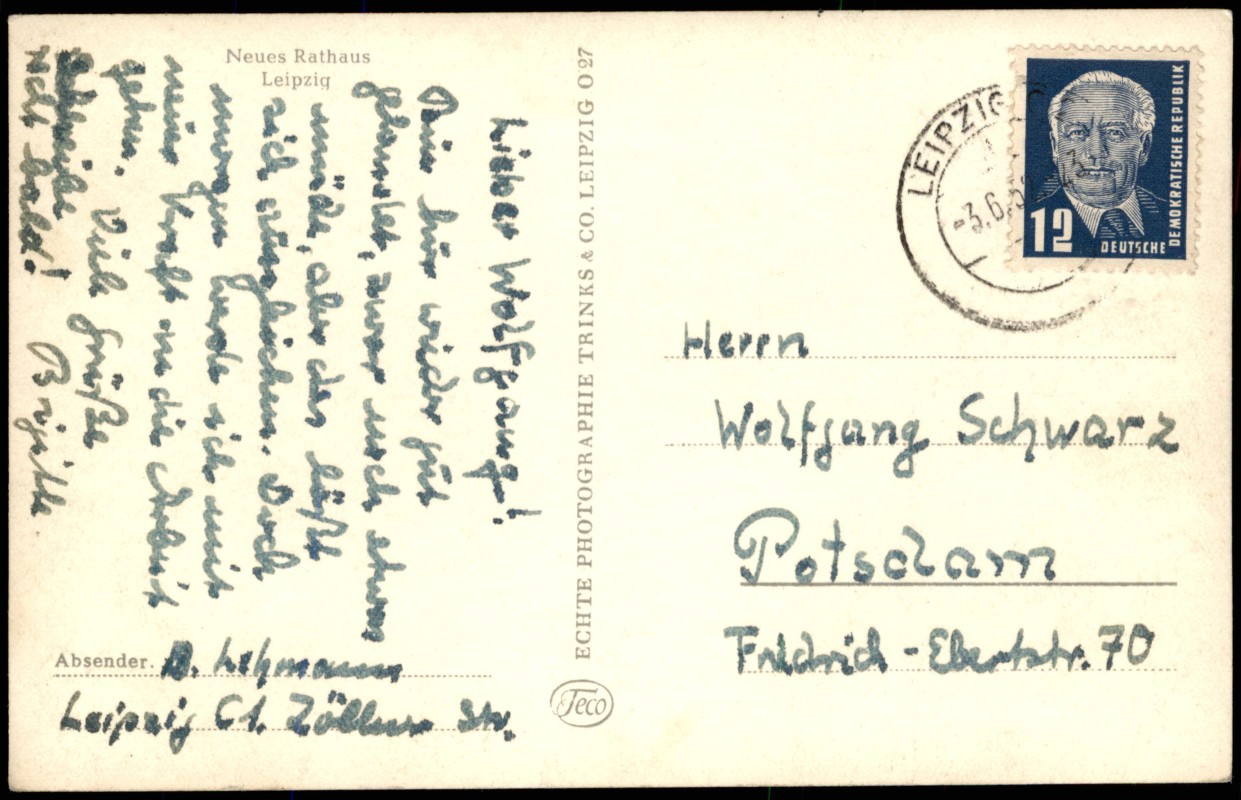 Neues Rathaus
Leipzig
Lieber Wolfgang!
Bin hier wieder gut
gelandet, zwar noch etwas
müde, aber das läßt
sich ausgleichen. Doch
morgen werde ich mit
neuer Kraft an die Arbeit
gehen. Viele Grüße
Schreibe
recht bald! Brigitte
Absender. B. Lehmann
Leipzig C1. Zöllner Str.
ECHTE PHOTOGRAPHIE TRINKS & CO. LEIPZIG O 27
Teco
LEIPZIG
-3.6.5
12
DEUTSCHE
DEMOKRATISCHE REPUBLIK
Herrn
Wolfgang Schwarz
Potsdam
Friedrich-Ebertstr. 70